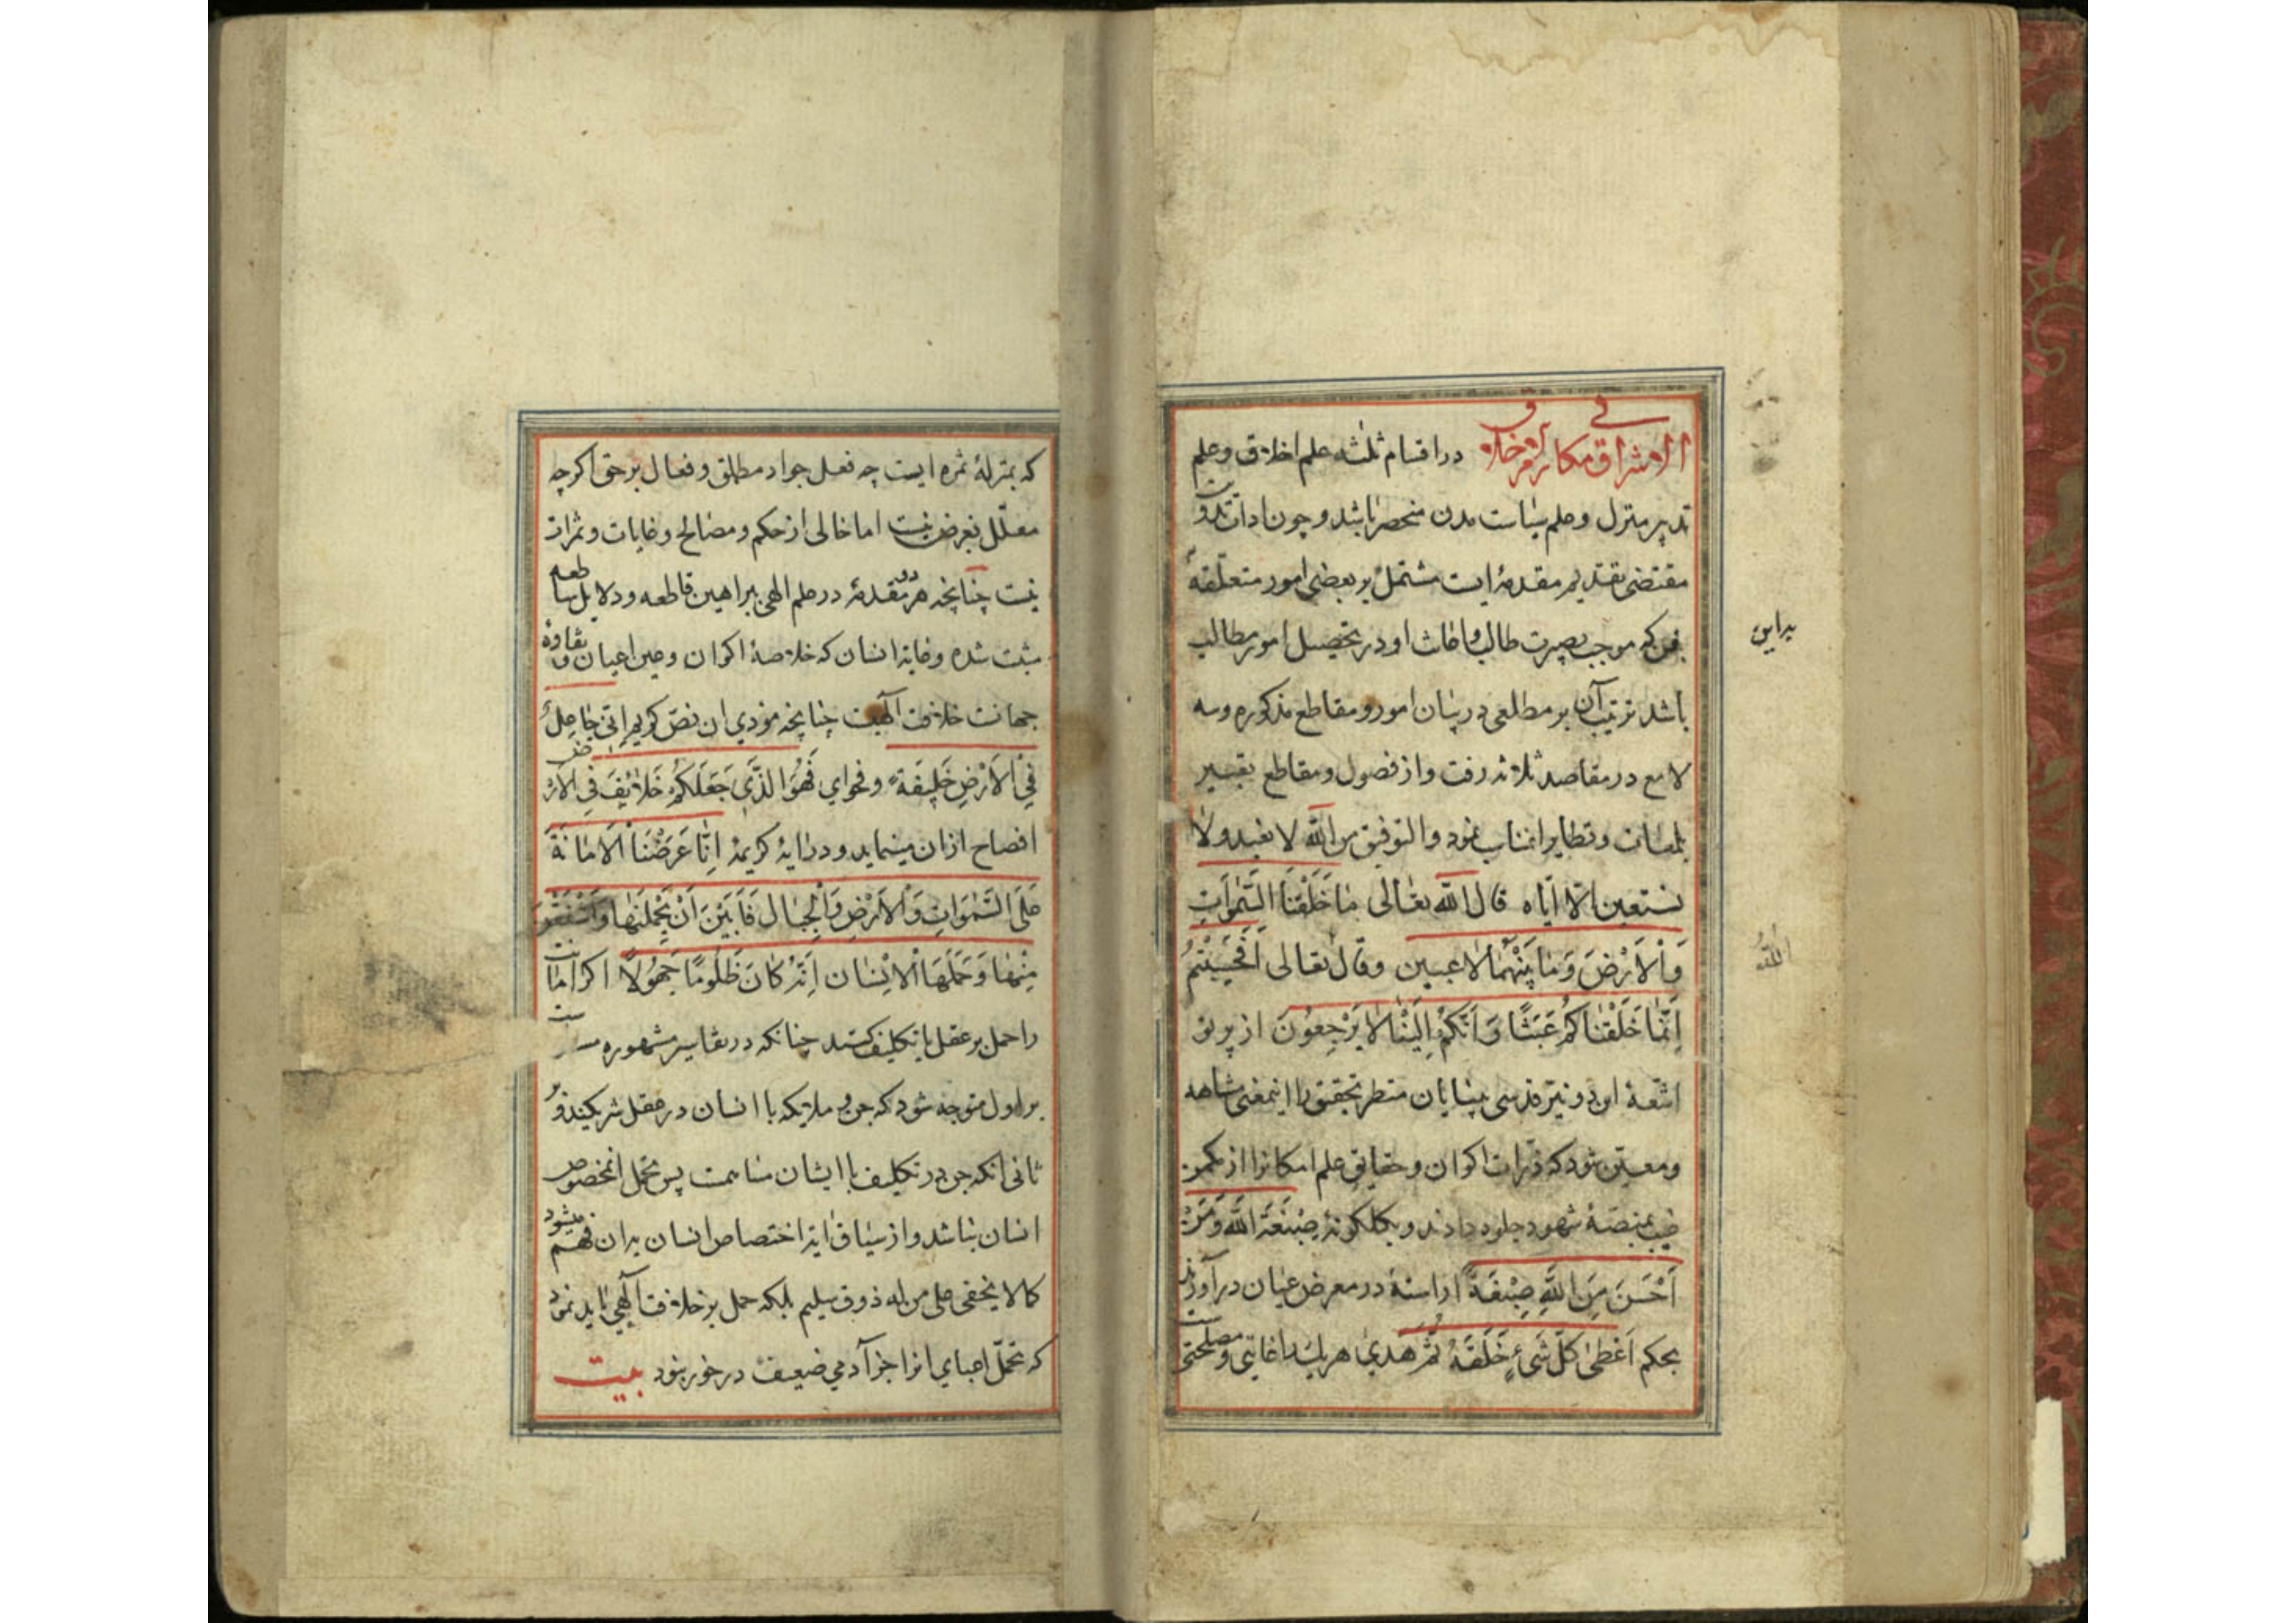 الاشراق فی مکارم الاخلاق در اقسام ثلثه علم اخلاق و علم
تدبیر منزل و علم سیاست مدن منحصر باشد و چون
مقتضی تقدیم مقدمهٔ ایست مشتمل بر بعضی امور متعلقه
بفن که موجب بصیرت طالب و اعانت او در تحصیل امور مطالب
باشد ترتیب آن بر مطلعی در بیان امور و مقاطع مذکوره و سه
لامع در مقاصد ثلاثه رفت و از فصول و مقاطع تعبیر
بلمعات و نظایر انمناسب نمود و التوفیق من الله لا نعبد ولا
نستعین الّا ایّاه قال الله تعالی مَا خَلَقْنَا السَّمٰوَاتِ
وَالْاَرْضَ وَمَا بَیْنَهُمَا لاعبین وقال تعالی اَفَحَسِبْتُمْ
اَنَّمَا خَلَقْنَاکُمْ عَبَثًا وَاَنَّکُمْ اِلَیْنَا لَا یُرْجِعُونَ از پرتو
اشعّهٔ این دو نیّر قدسی بینایان منظر تحقیق را اینمعنی مشاهد
ومعیّن شود که ذرات اکوان و حقایق علم امکانرا از مکمن
غیب بمنصّهٔ شهود جلوه دادند و بکلکونهٔ صِبْغَةَ اللّٰه وَمَنْ
اَحْسَنُ مِنَ اللّٰهِ صِبْغَةً اراسته در معرض عیان درآورند
بحکم اَعْطیٰ کُلَّ شَیْءٍ خَلَقَهُ ثُمَّ هَدیٰ هریک را غایتی و مصلحتی
براین
الله
که بمنزلهٔ ثمره ایست چه فعل جواد مطلق و فعال برحق اکرچه
معلّل بغرض نیست اما خالی از حکم و مصالح و غایات و ثمرات
نیست چنانچه هر دو مقدمهٔ در علم الهی ببراهین قاطعه و دلایل ساطعه
مثبت شده و غایة انسان که خلاصهٔ اکوان وعین اعیان و نقاوهٔ
جهانت خلافت آلهیت چنانچه مؤدی ان نصّ کریم اِنِّی جَاعِلٌ
فِی الْاَرْضِ خَلِیفَةً و فحوای فَهُوَ الَّذِی جَعَلَکُمْ خَلَائِفَ فِی الْاَرْض
افصاح ازان مینماید و در ایهٔ کریمهٔ اِنَّا عَرَضْنَا الْاَمَانَةَ
عَلَی السَّمٰوَاتِ وَالْاَرْضِ وَالْجِبَالِ فَاَبَیْنَ اَنْ یَحْمِلْنَهَا وَاَشْفَقْنَ
مِنْهَا وَحَمَلَهَا الْاِنْسَان اِنَّهُ کَانَ ظَلُومًا جَهُولًا اکر امانت
را حمل بر عقل یا تکلیف کنند چنانکه در تفاسیر مشهوره
بر اول متوجه شود که جن و ملایکه با انسان در عقل شریکند و بر
ثانی انکه جن در تکلیف با ایشان مساهمت پس تحمل انمخصوص
انسان نباشد و از سیاق ایة اختصاص انسان بدان فهم میشود
کما لا یخفی علی من له ذوق سلیم بلکه حمل بر خلافت آلهی باید نمود
که تحمّل اعبای انرا جز آدمی ضعیف درخور نبود بیت